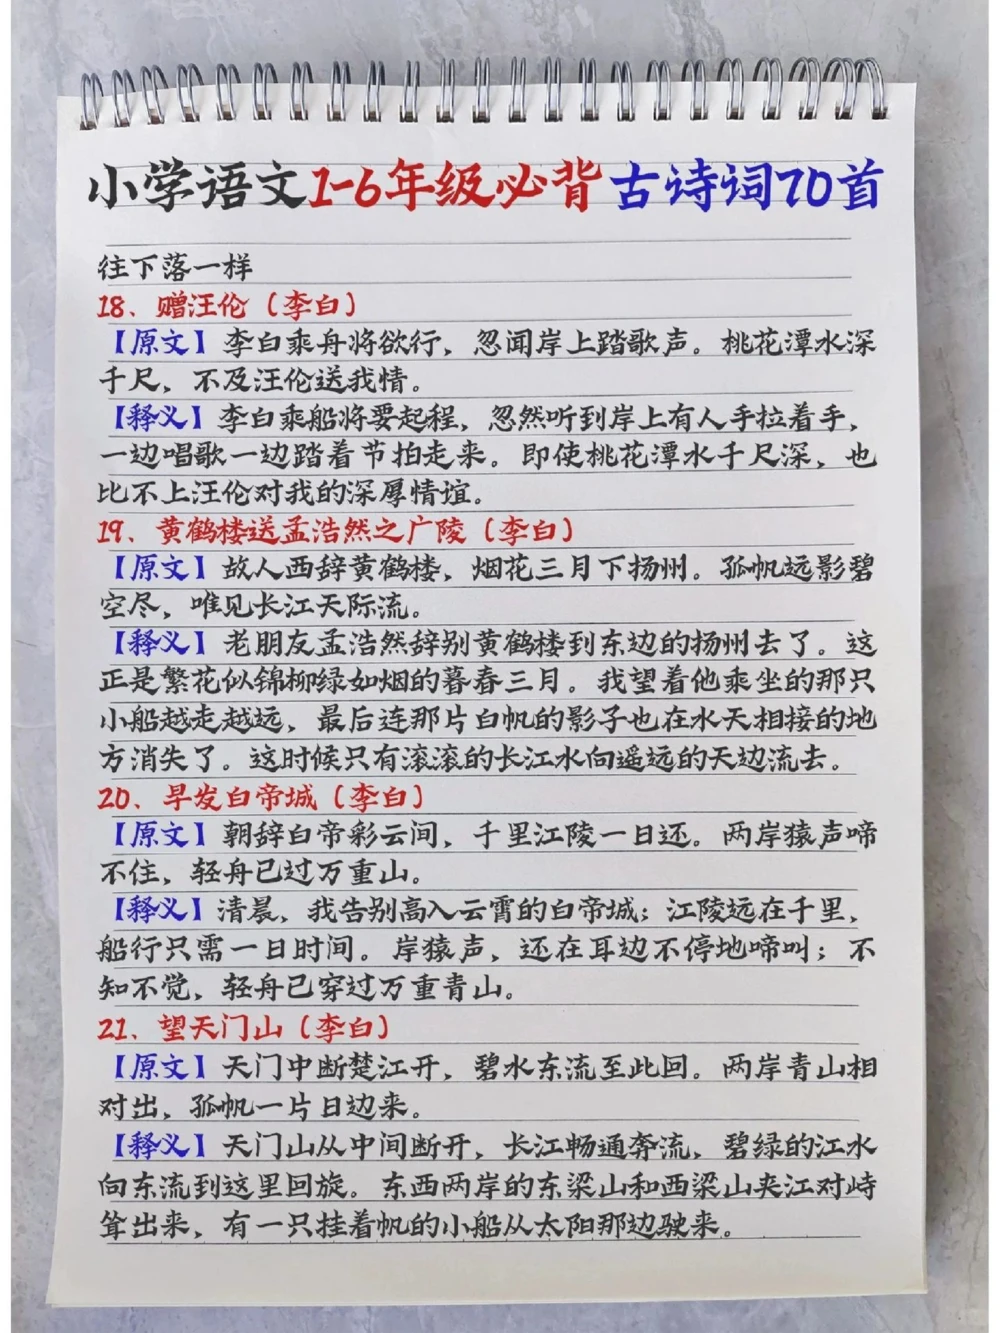 小学语文1-6年级必背古诗词70首
往下落一样
18、赠汪伦（李白）
【原文】李白乘舟将欲行，忽闻岸上踏歌声。桃花潭水深
千尺，不及汪伦送我情。
【释义】李白乘船将要起程，忽然听到岸上有人手拉着手，
一边唱歌一边踏着节拍走来。即使桃花潭水千尺深，也
比不上汪伦对我的深厚情谊。
19、黄鹤楼送孟浩然之广陵（李白）
【原文】故人西辞黄鹤楼，烟花三月下扬州。孤帆远影碧
空尽，唯见长江天际流。
【释义】老朋友孟浩然辞别黄鹤楼到东边的扬州去了。这
正是繁花似锦柳绿如烟的暮春三月。我望着他乘坐的那只
小船越走越远，最后连那片白帆的影子也在水天相接的地
方消失了。这时候只有滚滚的长江水向遥远的天边流去。
20、早发白帝城（李白）
【原文】朝辞白帝彩云间，千里江陵一日还。两岸猿声啼
不住，轻舟已过万重山。
【释义】清晨，我告别高入云霄的白帝城；江陵远在千里，
船行只需一日时间。岸猿声，还在耳边不停地啼叫；不
知不觉，轻舟已穿过万重青山。
21、望天门山（李白）
【原文】天门中断楚江开，碧水东流至此回。两岸青山相
对出，孤帆一片日边来。
【释义】天门山从中间断开，长江畅通奔流，碧绿的江水
向东流到这里回旋。东西两岸的东梁山和西梁山夹江对峙
耸出来，有一只挂着帆的小船从太阳那边驶来。